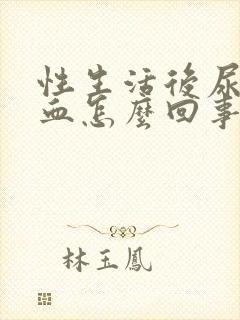 性生活後尿
血怎麼回事
林玉鳳